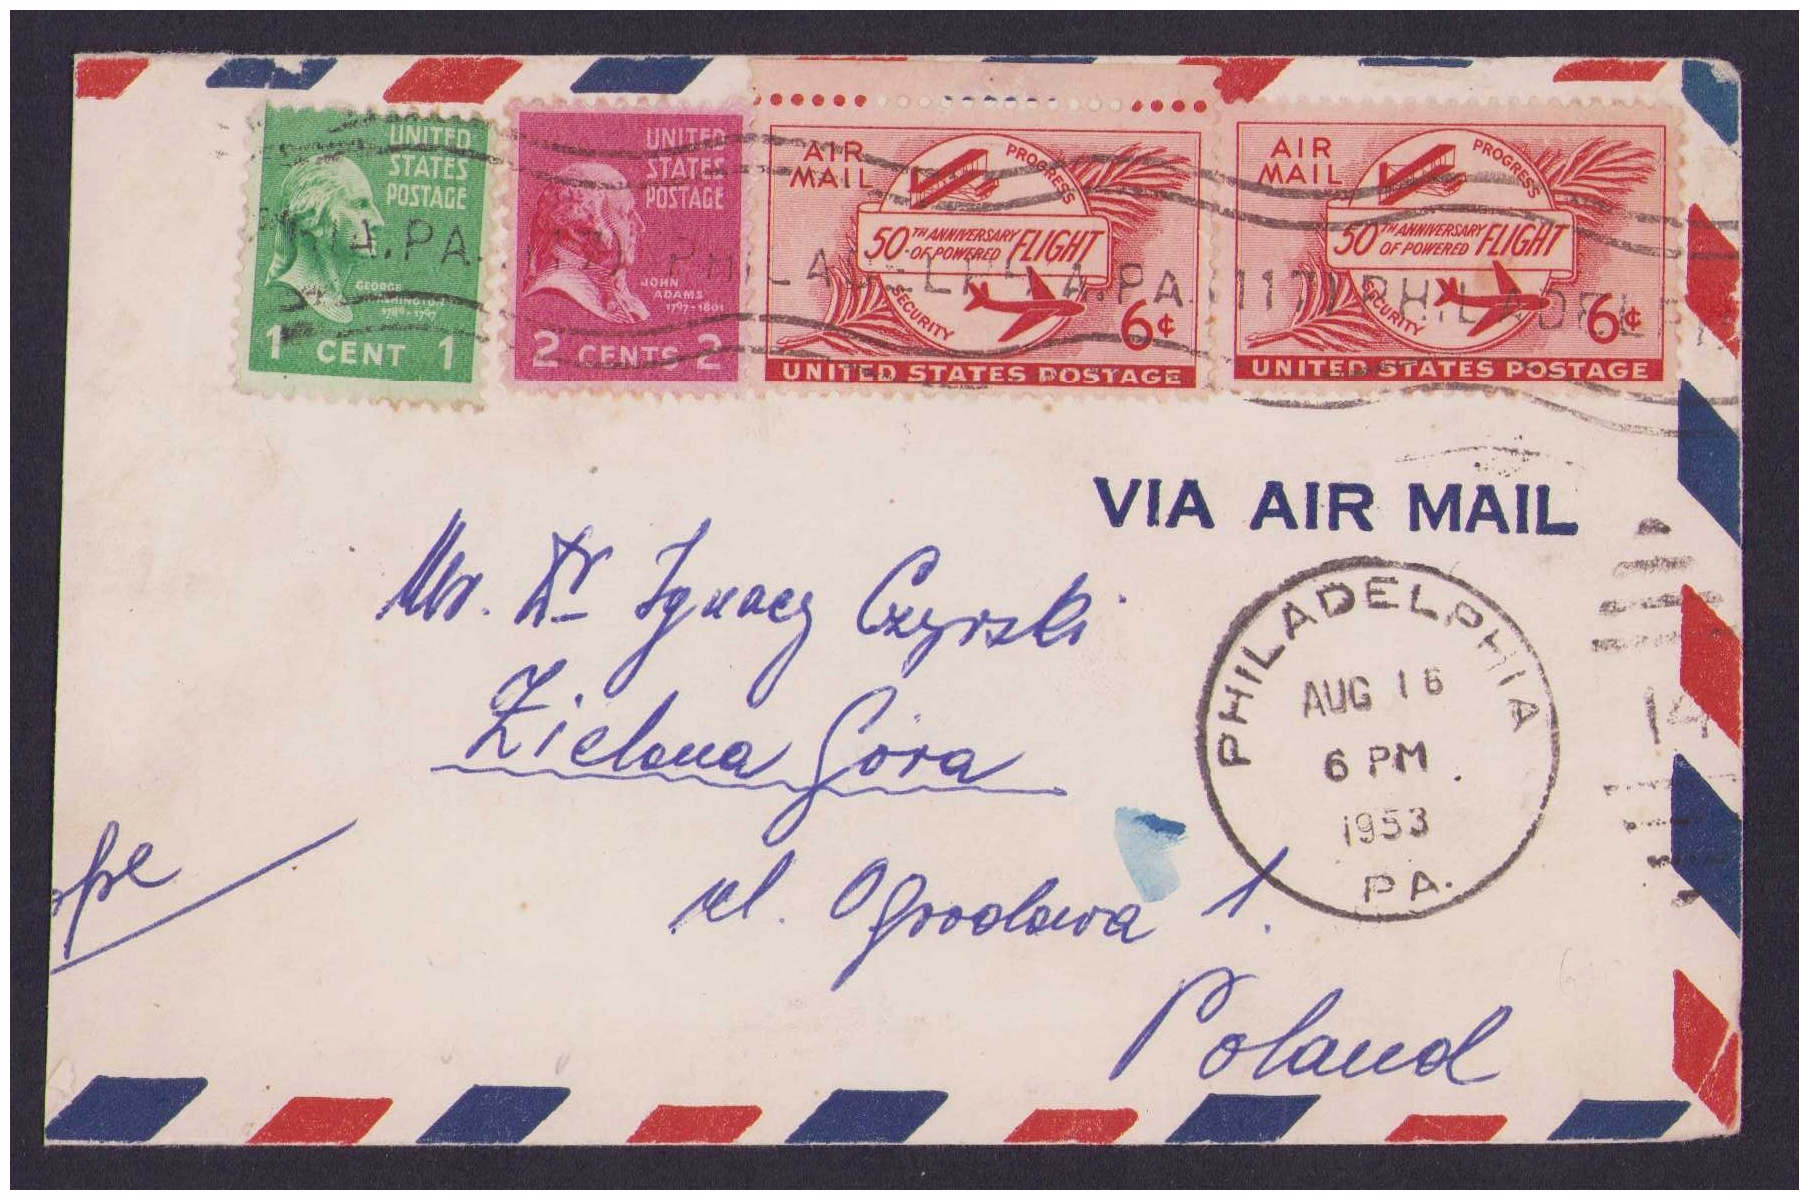 UNITED
STATES
POSTAGE
GEORGE
WASHINGTON
1789-1797
1 CENT 1
UNITED
STATES
POSTAGE
JOHN
ADAMS
1797-1801
2 CENTS 2
AIR
MAIL
PROGRESS
50TH ANNIVERSARY
OF POWERED FLIGHT
SECURITY
6¢
UNITED STATES POSTAGE
AIR
MAIL
PROGRESS
50TH ANNIVERSARY
OF POWERED FLIGHT
SECURITY
6¢
UNITED STATES POSTAGE
PHILADELPHIA, PA.
VIA AIR MAIL
Mr. Dr Ignacy Czyrski
Zielona Góra
ul. Ogrodowa 1.
Poland
PHILADELPHIA
AUG 16
6 PM
1953
PA.
14